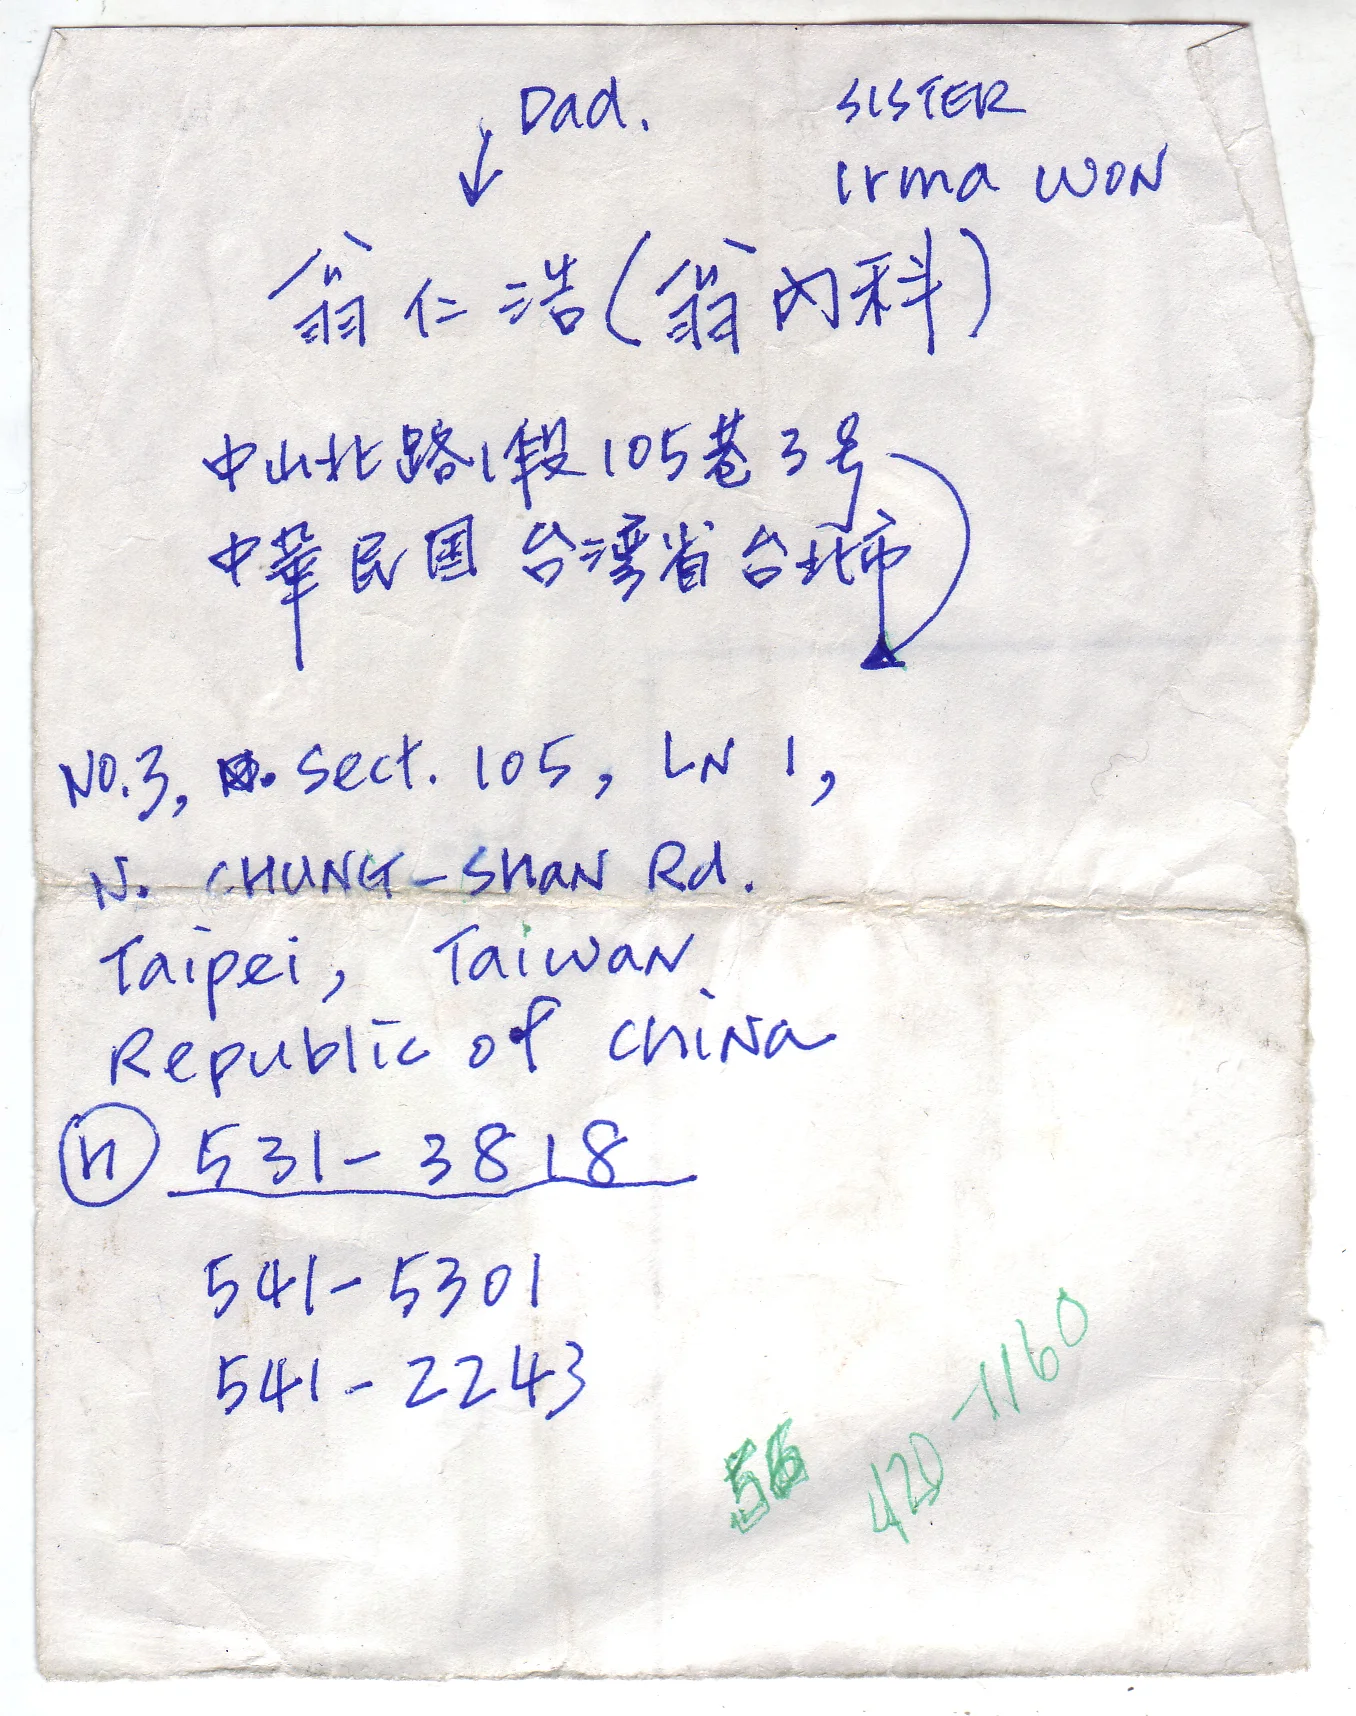 Dad.
SISTER
Irma WON
翁仁浩(翁内科)
中山北路1段105巷3号
中華民国 台湾省台北市
NO.3, Sect. 105, LN 1,
N. CHUNG-SHAN Rd.
Taipei, Taiwan
Republic of China
H 531-3818
541-5301
541-2243
56
420-1160